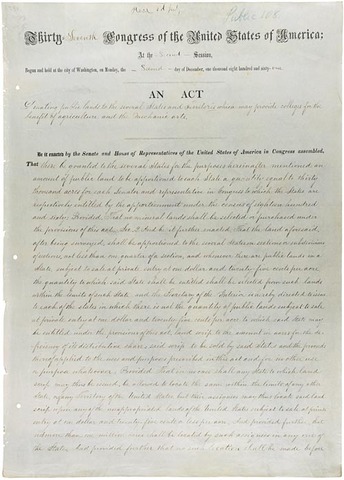 Public 108
Thirty Seventh Congress of the United States of America;
At the Second Session,
Begun and held at the city of Washington, on Monday, the Second day of December, one thousand eight hundred and sixty-one
AN ACT
Donating public lands to the several States and Territories which may provide colleges for the
benefit of agriculture and the mechanic arts.
Be it enacted by the Senate and House of Representatives of the United States of America in Congress assembled,
That there be granted to the several States, for the purposes hereinafter mentioned, an
amount of public land, to be apportioned to each State a quantity equal to thirty
thousand acres for each Senator and representative in Congress to which the States are
respectively entitled by the apportionment under the census of eighteen hundred
and sixty: Provided, That no mineral lands shall be selected or purchased under
the provisions of this act. Sec. 2. And be it further enacted, That the land aforesaid,
after being surveyed, shall be apportioned to the several States in sections or subdivisions
of sections, not less than one quarter of a section; and whenever there are public lands in a
State, subject to sale at private entry at one dollar and twenty-five cents per acre,
the quantity to which said State shall be entitled shall be selected from such lands
within the limits of such State; and the Secretary of the Interior is hereby directed to issue
to each of the States, in which there is not the quantity of public lands subject to sale
at private entry at one dollar and twenty-five cents per acre, to which said State may
be entitled under the provisions of this act, land scrip to the amount in acres for the de-
ficiency of its distributive share; said scrip to be sold by said States and the proceeds
thereof applied to the uses and purposes prescribed in this act, and for no other use
or purpose whatsoever: Provided, That in no case shall any State to which land
scrip may thus be issued be allowed to locate the same within the limits of any other
State, or of any Territory of the United States, but their assignees may thus locate said land
scrip upon any of the unappropriated lands of the United States subject to sale at private
entry at one dollar and twenty-five cents, or less, per acre: And provided further, That
not more than one million acres shall be located by such assignees in any one of
the States: And provided further, That no such location shall be made before